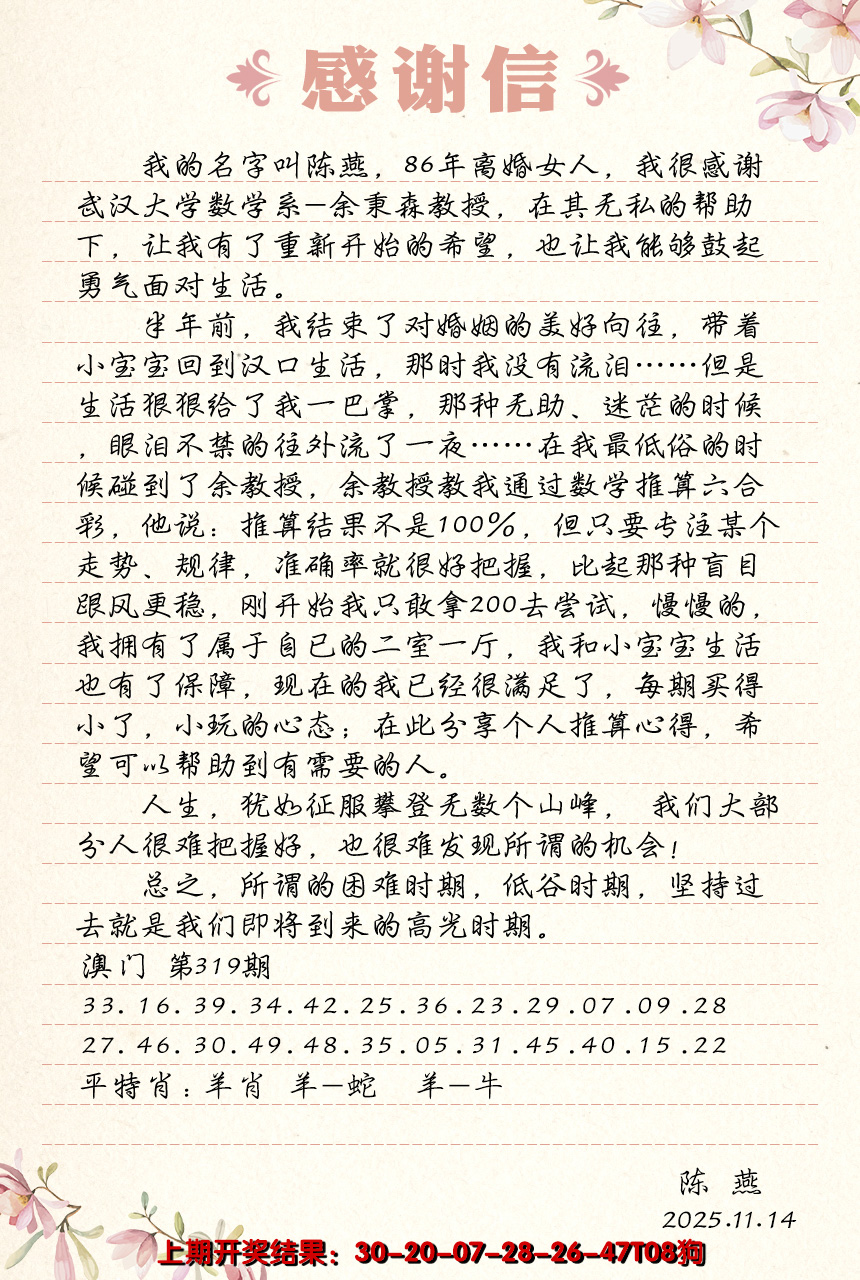 感谢信
我的名字叫陈燕，86年离婚女人，我很感谢
武汉大学数学系—余秉森教授，在其无私的帮助
下，让我有了重新开始的希望，也让我能够鼓起
勇气面对生活。
半年前，我结束了对婚姻的美好向往，带着
小宝宝回到汉口生活，那时我没有流泪……但是
生活狠狠给了我一巴掌，那种无助、迷茫的时候
，眼泪不禁的往外流了一夜……在我最低俗的时
候碰到了余教授，余教授教我通过数学推算六合
彩，他说：推算结果不是100%，但只要专注某个
走势、规律，准确率就很好把握，比起那种盲目
跟风更稳，刚开始我只敢拿200去尝试，慢慢的，
我拥有了属于自己的二室一厅，我和小宝宝生活
也有了保障，现在的我已经很满足了，每期买得
小了，小玩的心态；在此分享个人推算心得，希
望可以帮助到有需要的人。
人生，犹如征服攀登无数个山峰， 我们大部
分人很难把握好，也很难发现所谓的机会！
总之，所谓的困难时期，低谷时期，坚持过
去就是我们即将到来的高光时期。
澳门 第319期
33.16.39.34.42.25.36.23.29.07.09.28
27.46.30.49.48.35.05.31.45.40.15.22
平特肖：羊肖 羊—蛇 羊—牛
陈 燕
2025.11.14
上期开奖结果：30-20-07-28-26-47T08狗